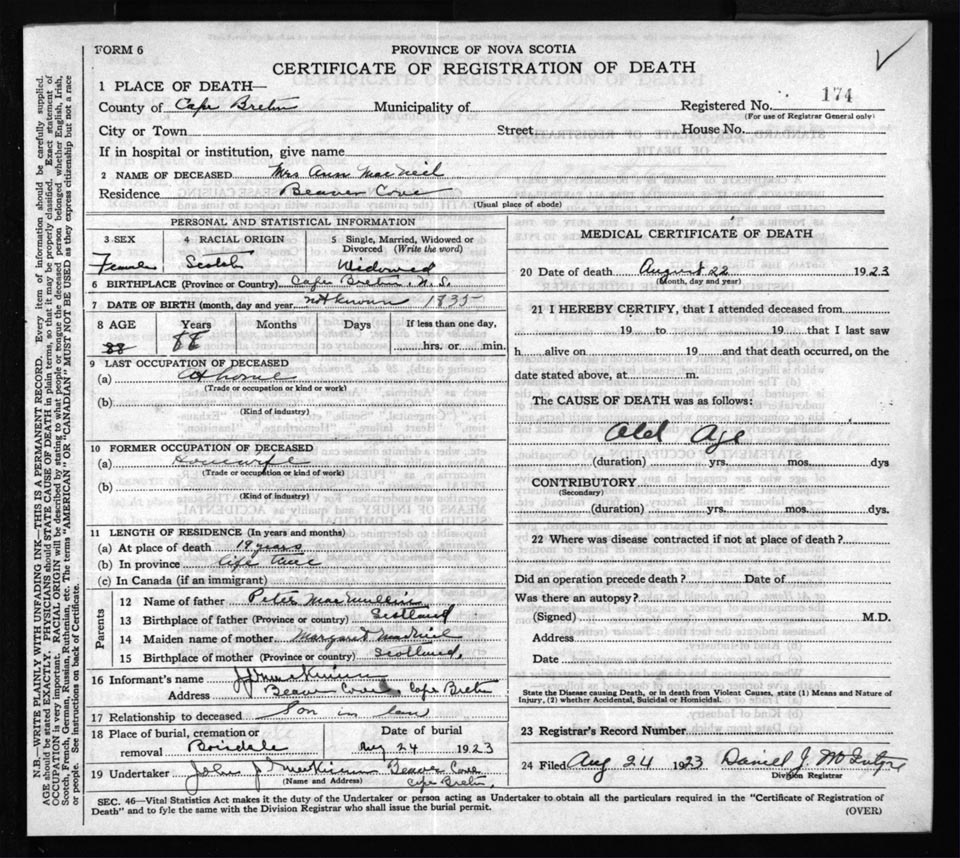 FORM 6
PROVINCE OF NOVA SCOTIA
CERTIFICATE OF REGISTRATION OF DEATH
1 PLACE OF DEATH—
County of Cape Breton Municipality of Registered No. 174
(For use of Registrar General only)
City or Town Street House No.
If in hospital or institution, give name
2 NAME OF DECEASED Mrs Ann MacNeil
Residence Beaver Cove
(Usual place of abode)
PERSONAL AND STATISTICAL INFORMATION
3 SEX 4 RACIAL ORIGIN 5 Single, Married, Widowed or
Divorced (Write the word)
Female Scotch Widowed
6 BIRTHPLACE (Province or Country) Cape Breton, N.S.
7 DATE OF BIRTH (month, day and year) not known 1835
8 AGE Years Months Days If less than one day,
88 88 hrs. or min.
9 LAST OCCUPATION OF DECEASED
(a) At home
(Trade or occupation or kind or work)
(b)
(Kind of industry)
10 FORMER OCCUPATION OF DECEASED
(a) Housewife
(Trade or occupation or kind of work)
(b)
(Kind of industry)
11 LENGTH OF RESIDENCE (In years and months)
(a) At place of death 19 years
(b) In province life time
(c) In Canada (if an immigrant)
Parents
12 Name of father Peter MacMullin
13 Birthplace of father (Province or country) Scotland
14 Maiden name of mother Margaret MacNeil
15 Birthplace of mother (Province or country) Scotland,
16 Informant's name
Address Beaver Cove Cape Breton
17 Relationship to deceased Son in law
18 Place of burial, cremation or Date of burial
removal Boisdale Aug 24 1923
19 Undertaker John J Beaver Cove
(Name and Address) Cape Breton,
MEDICAL CERTIFICATE OF DEATH
20 Date of death August 22 1923
(Month, day and year)
21 I HEREBY CERTIFY, that I attended deceased from
19 to 19 that I last saw
h alive on 19 and that death occurred, on the
date stated above, at m.
The CAUSE OF DEATH was as follows:
Old Age
(duration) yrs. mos. dys
CONTRIBUTORY
(Secondary)
(duration) yrs. mos. dys.
22 Where was disease contracted if not at place of death?
Did an operation precede death? Date of
Was there an autopsy?
(Signed) M.D.
Address
Date
State the Disease causing Death, or in death from Violent Causes, state (1) Means and Nature of
Injury, (2) whether Accidental, Suicidal or Homicidal.
23 Registrar's Record Number
24 Filed Aug 24 1923 Daniel J. McIntyre
Division Registrar
SEC. 46—Vital Statistics Act makes it the duty of the Undertaker or person acting as Undertaker to obtain all the particulars required in the "Certificate of Registration of
Death" and to fyle the same with the Division Registrar who shall issue the burial permit. (OVER)
N.B.—WRITE PLAINLY WITH UNFADING INK—THIS IS A PERMANENT RECORD. Every item of information should be carefully supplied.
AGE should be stated EXACTLY. PHYSICIANS should STATE CAUSE OF DEATH in plain terms, so that it may be properly classified. Exact statement of
OCCUPATION is very important. RACIAL ORIGIN will be described by stating to what people or tongue the deceased person belonged, whether English, Irish,
Scotch, French, German, Russian, Ruthenian, etc. The terms "AMERICAN" OR "CANADIAN" MUST NOT BE USED as they express citizenship but not a race
or people. See instructions on back of Certificate.